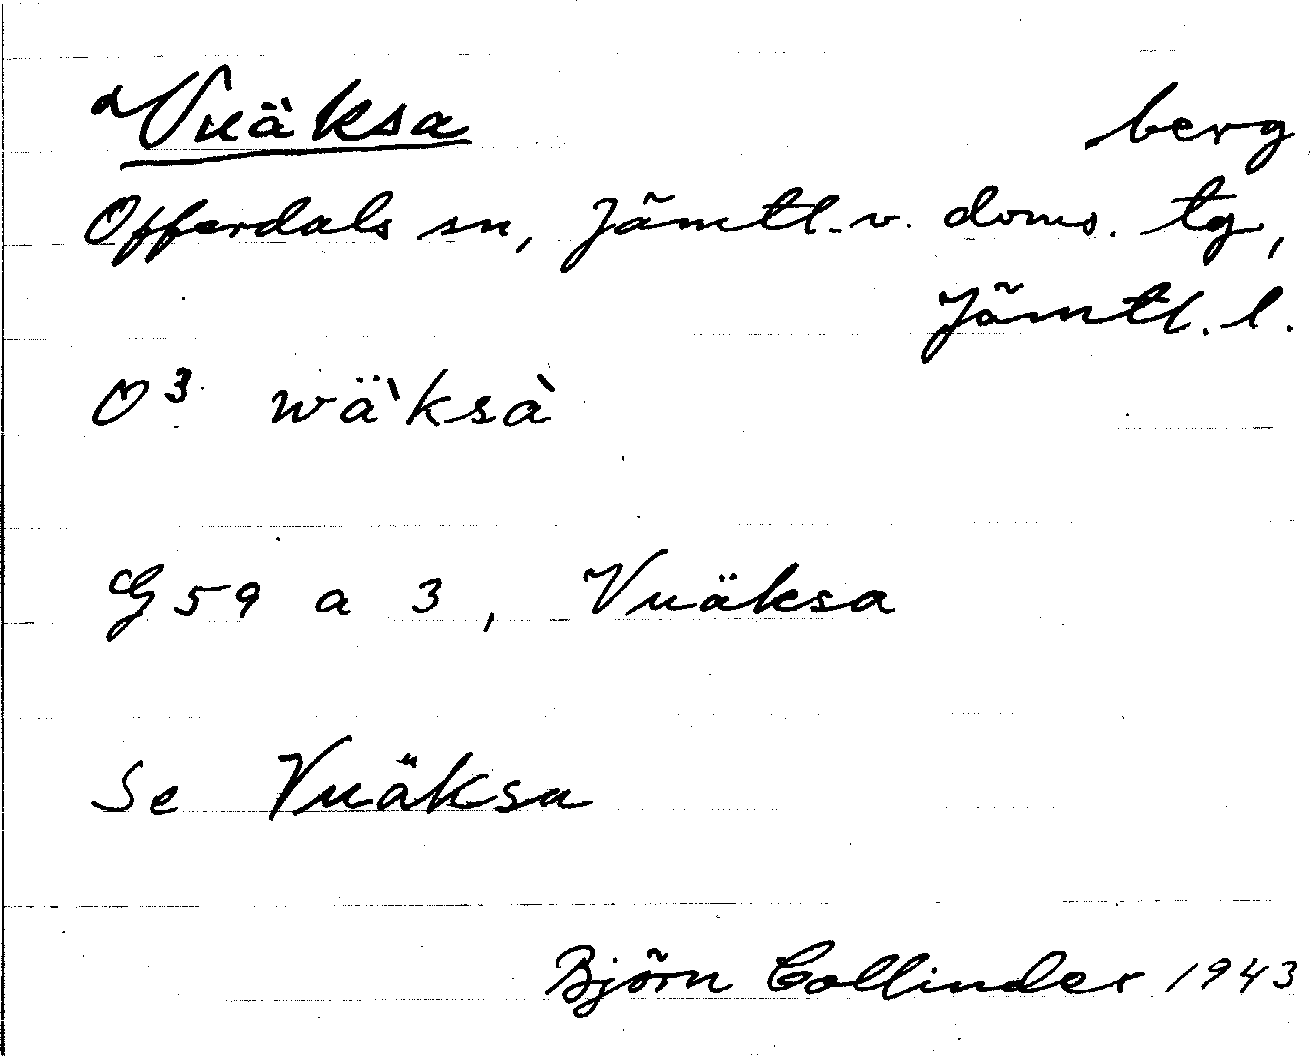 Vuäksa berg
Offerdals sn, Jämtl. v. doms. tg,
Jämtl. l.
O³ wä`ksà
G 59 a 3, Vuäksa
Se Vuäksa
Björn Collinder 1943